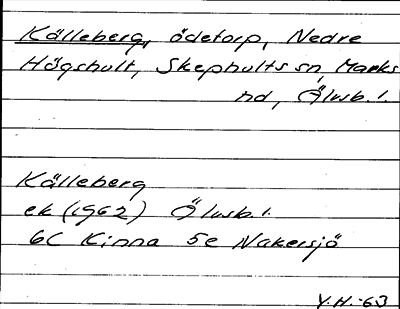 Källeberg, ödetorp, Nedre
Högshult, Skephults sn, Marks
hd, Älvsb. l.
Källeberg
ek (1962) Älvsb. l.
6C Kinna 5e Nakersjö
V.H.-63